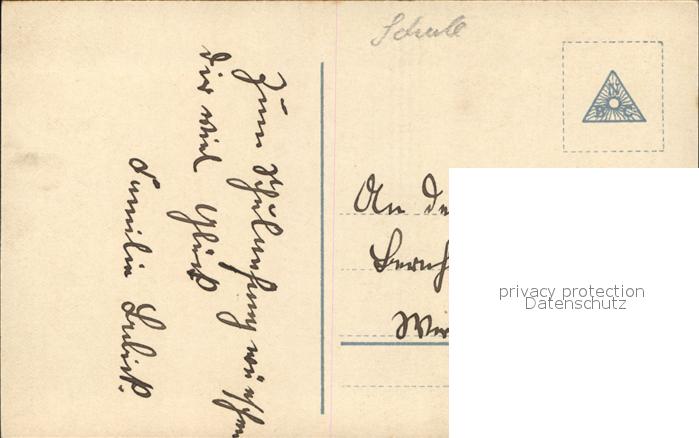 Schule
Zum Schulanfang wünschen
dir viel Glück
Familie
An de
Bernh
privacy protection
Datenschutz